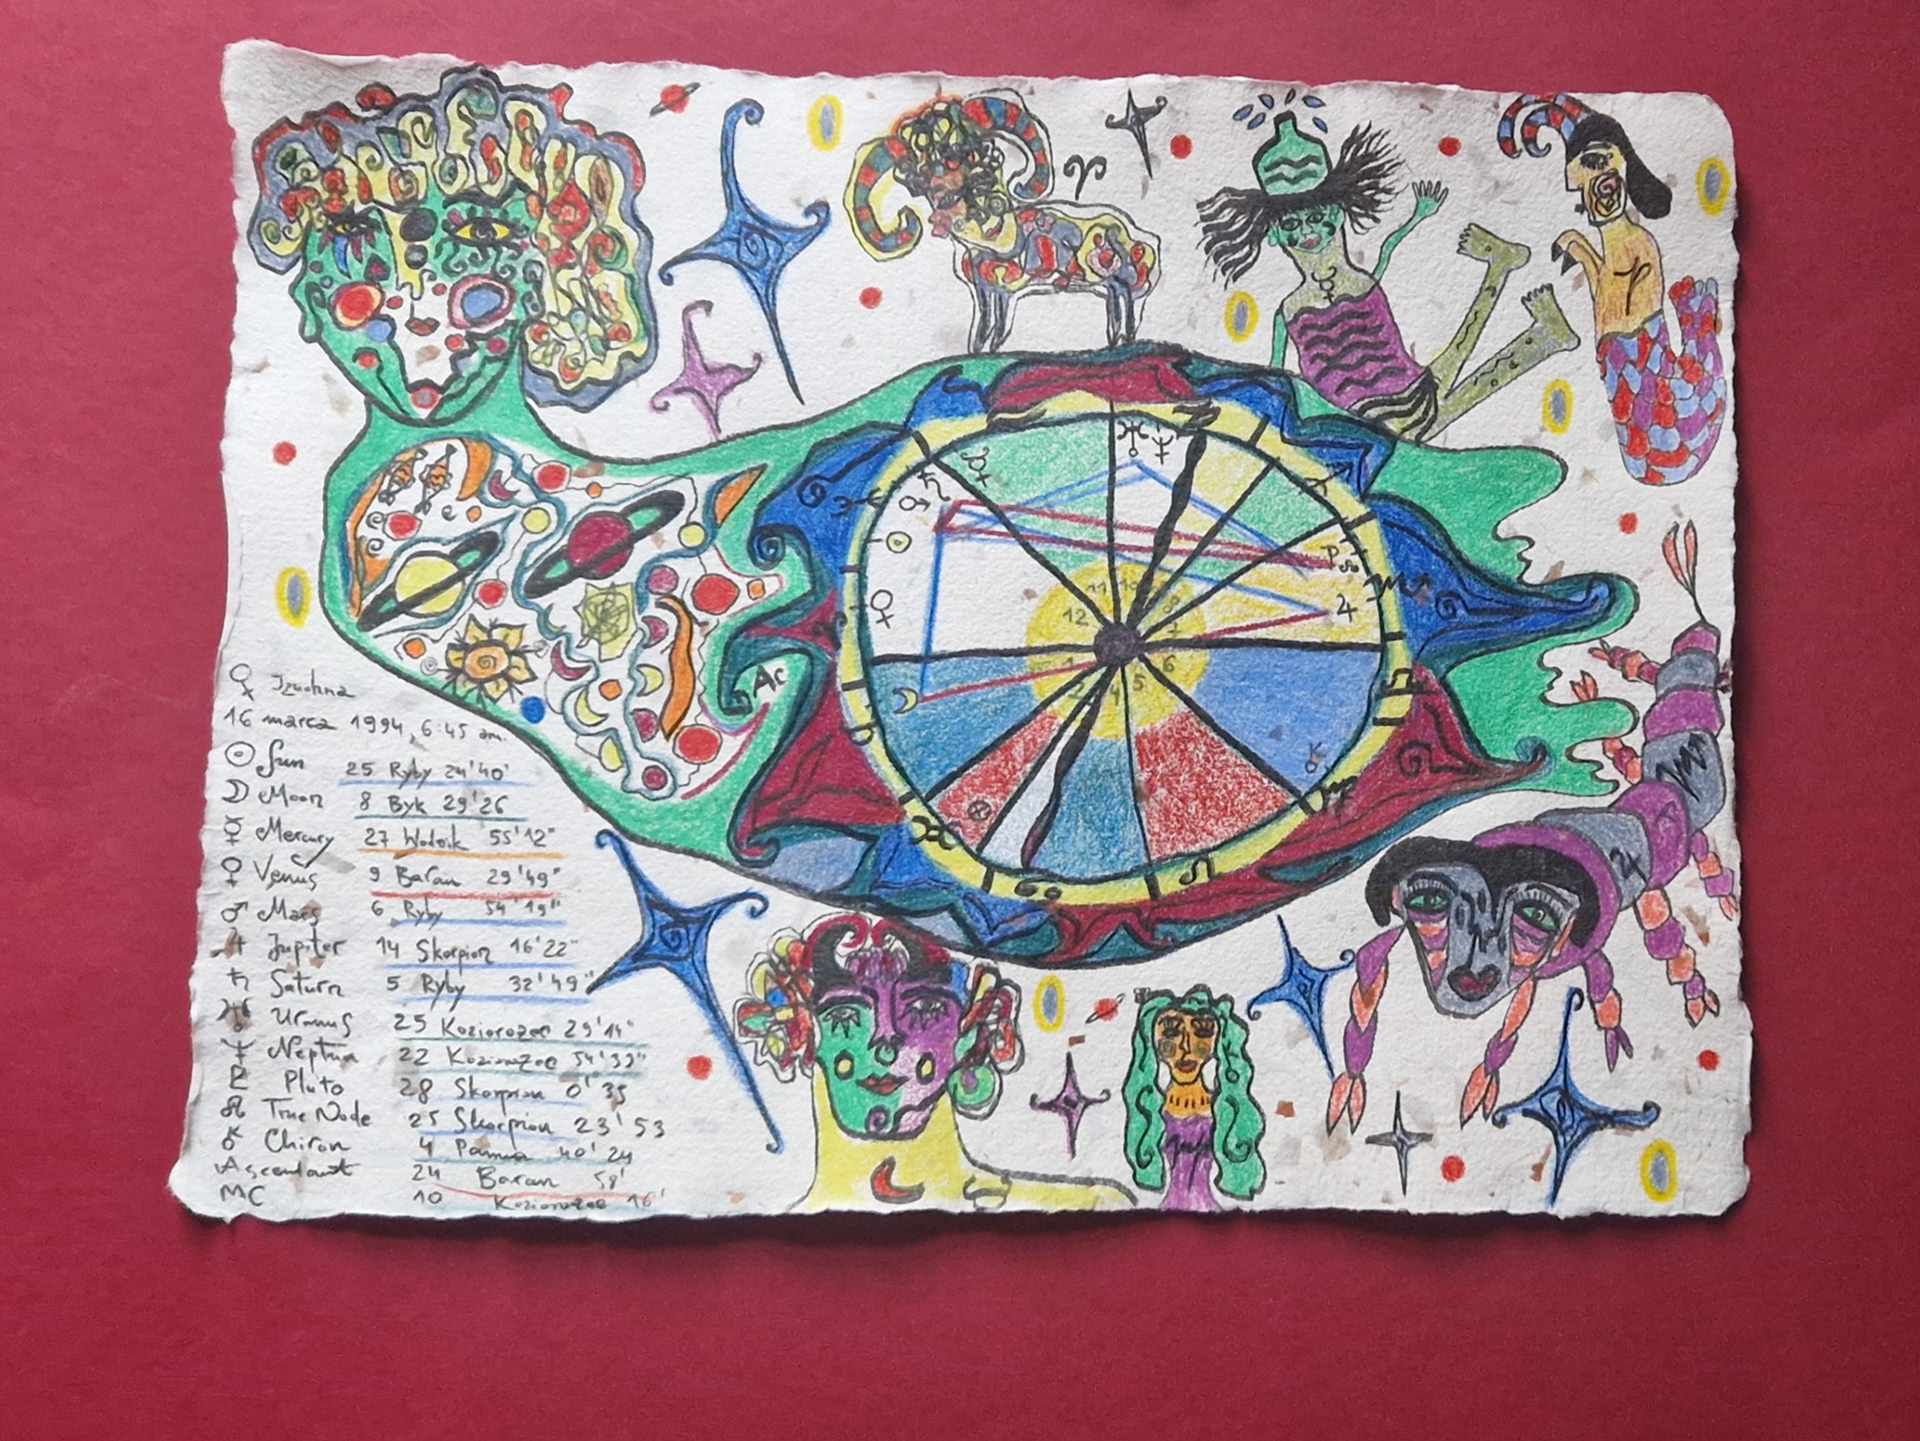 16 marca 1994, 6:45 am.
☉ Sun 25 Ryby 24'40'
☽ Moon 8 Byk 29'26
☿ Mercury 27 Wodnik 55'12"
♀ Venus 9 Baran 29'49"
♂ Mars 6 Ryby 54'19"
♃ Jupiter 14 Skorpion 16'22"
♄ Saturn 5 Ryby 32'49"
♅ Uranus 25 Koziorożec 29'14"
♆ Neptun 22 Koziorożec 54'33"
♇ Pluto 28 Skorpion 0'35
☊ True Node 25 Skorpion 23'53
⚷ Chiron 4 Panna 40'24
Ascendant 24 Baran 58'
MC 10 Koziorożec 16'
AC
12 11 10 8 7
1 2 4 5 6